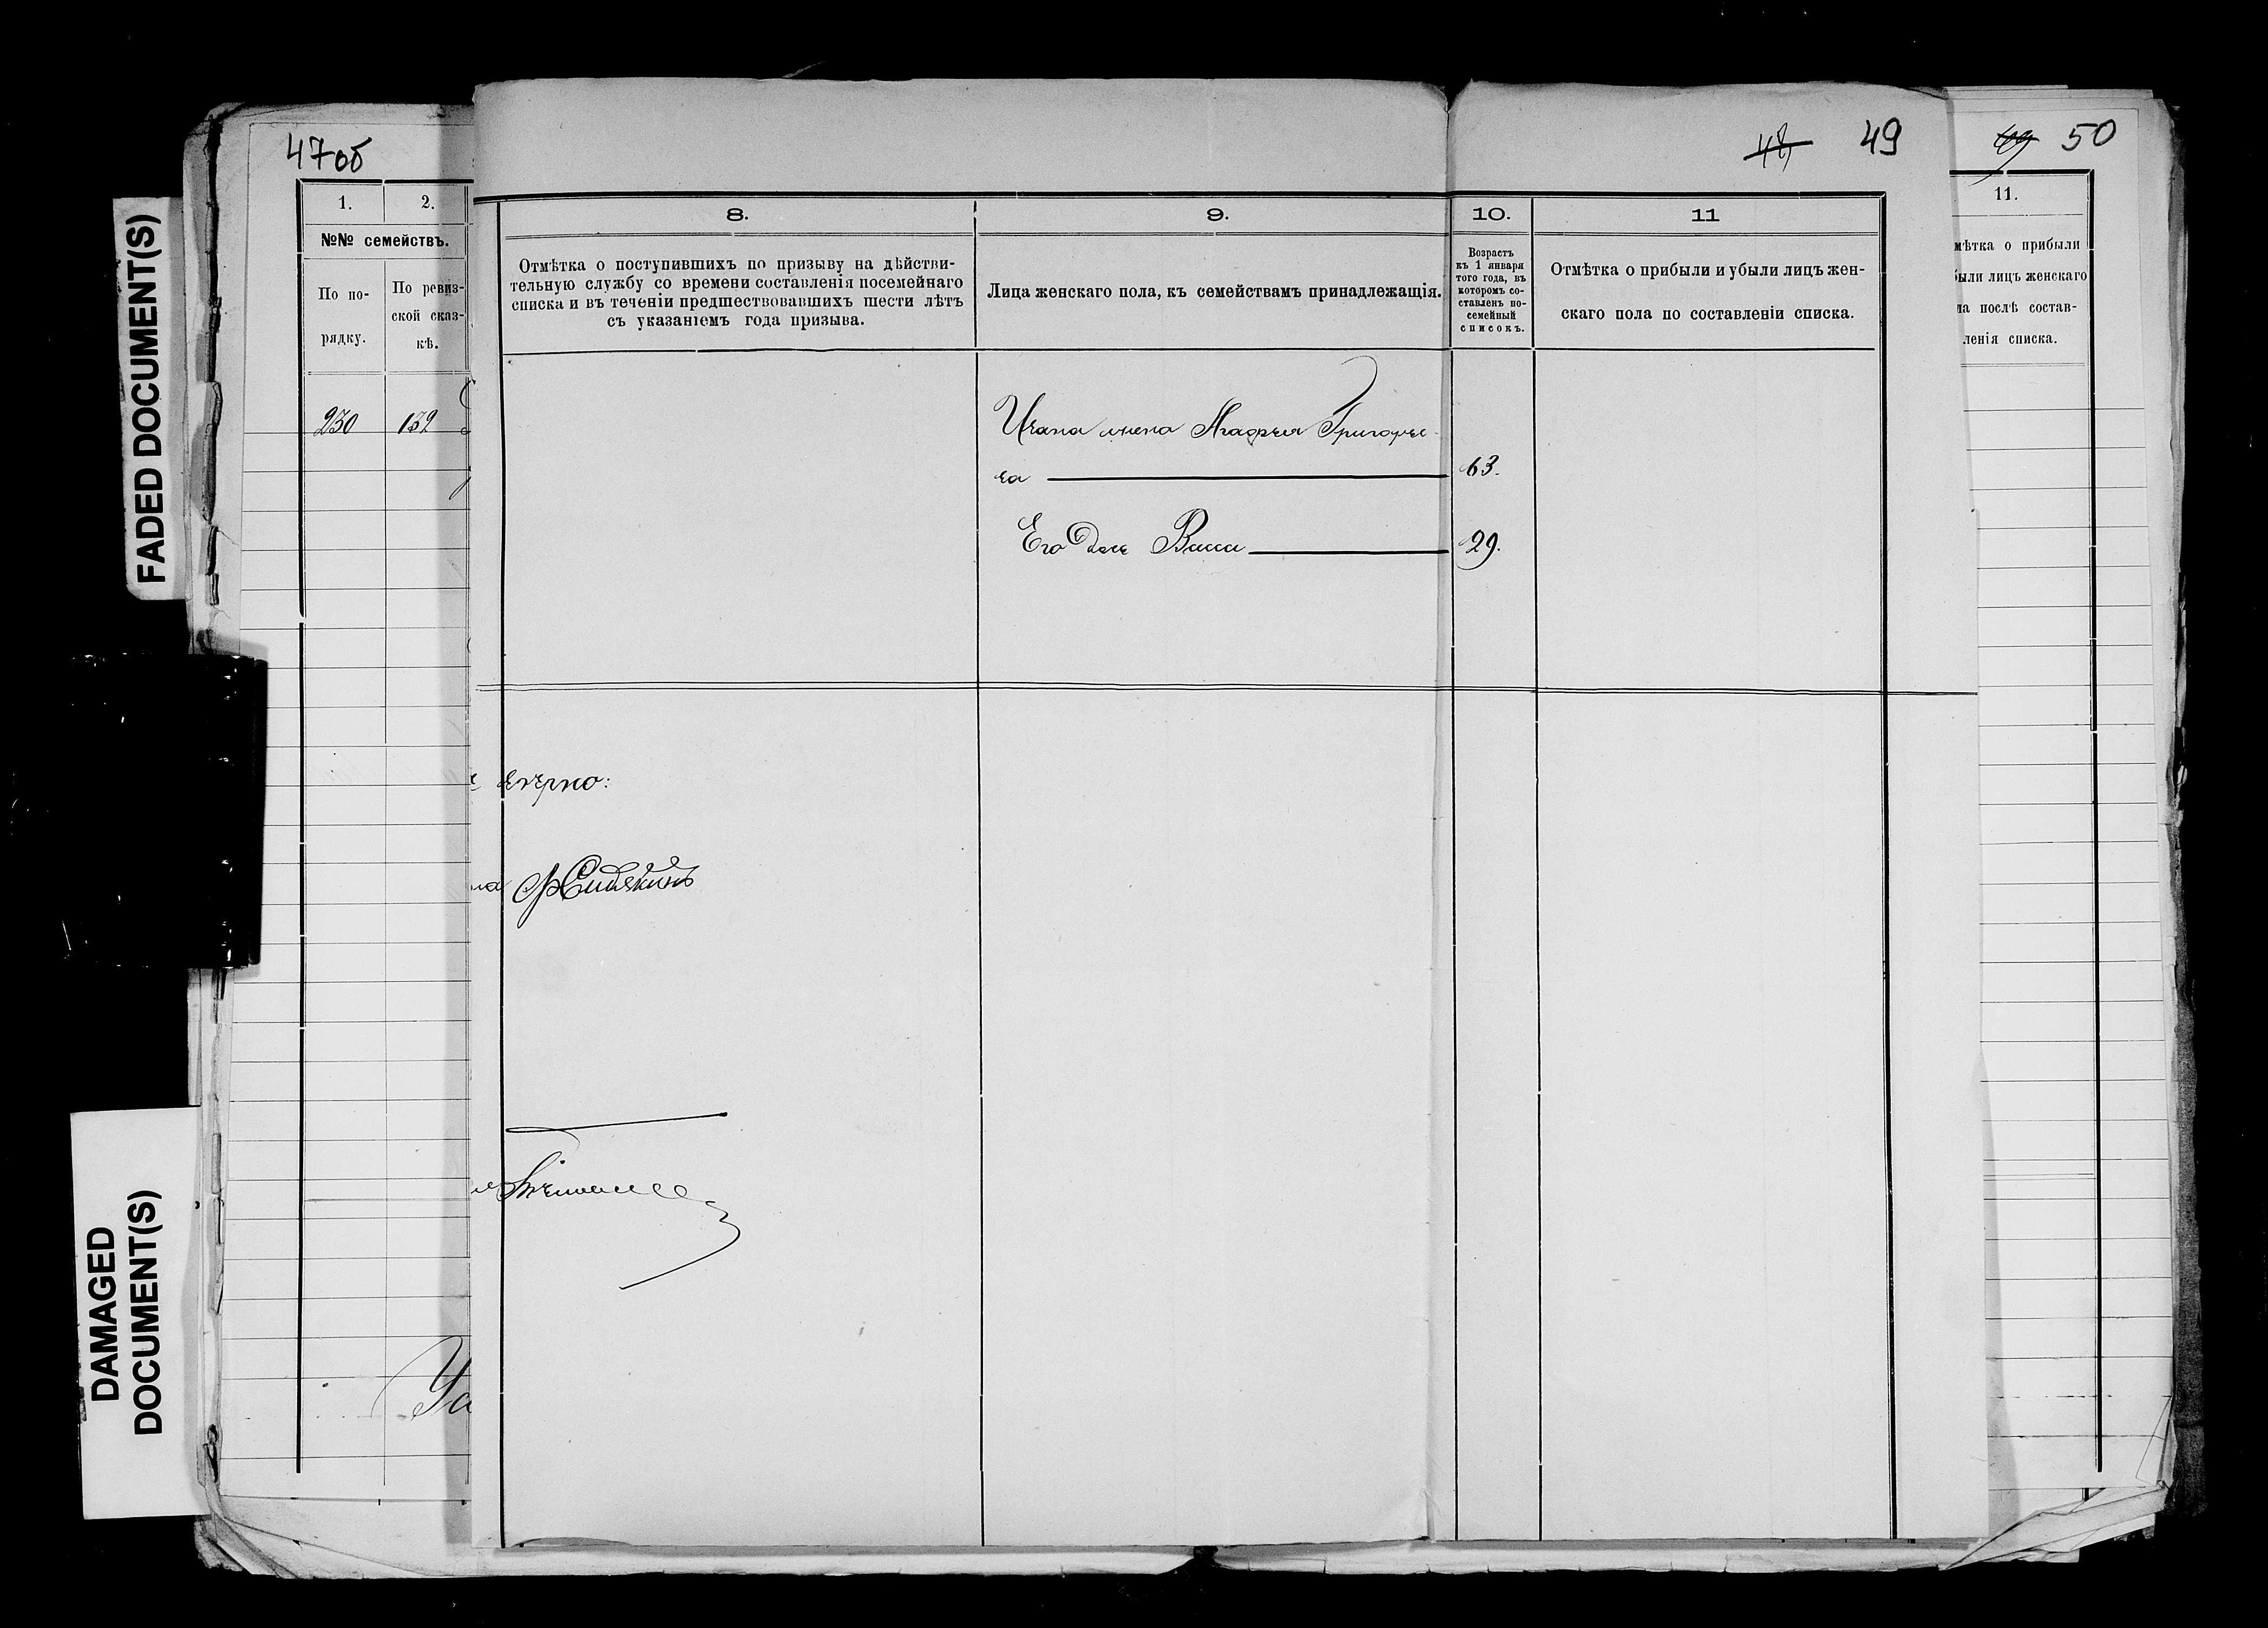 47об
48 49
49 50
FADED DOCUMENT(S)
DAMAGED
DOCUMENT(S)
1. 2.
№№ семействъ.
По по-
рядку.
По ревиз-
ской сказ-
кѣ.
230 132
8.
Отмѣтка о поступившихъ по призыву на дѣйстви-
тельную службу со времени составленія посемейнаго
списка и въ теченіи предшествовавшихъ шести лѣтъ
съ указаніемъ года призыва.
9.
Лица женскаго пола, къ семействамъ принадлежащія.
10.
Возрастъ
къ 1 января
того года, въ
которомъ со-
ставленъ по-
семейный
списокъ.
11
Отмѣтка о прибыли и убыли лицъ жен-
скаго пола по составленіи списка.
11.
мѣтка о прибыли
были лицъ женскаго
ла послѣ состав-
ленія списка.
Ивана жена Агафья Григорье-
ва 63.
Его дочь Васса 29.
вѣрно: